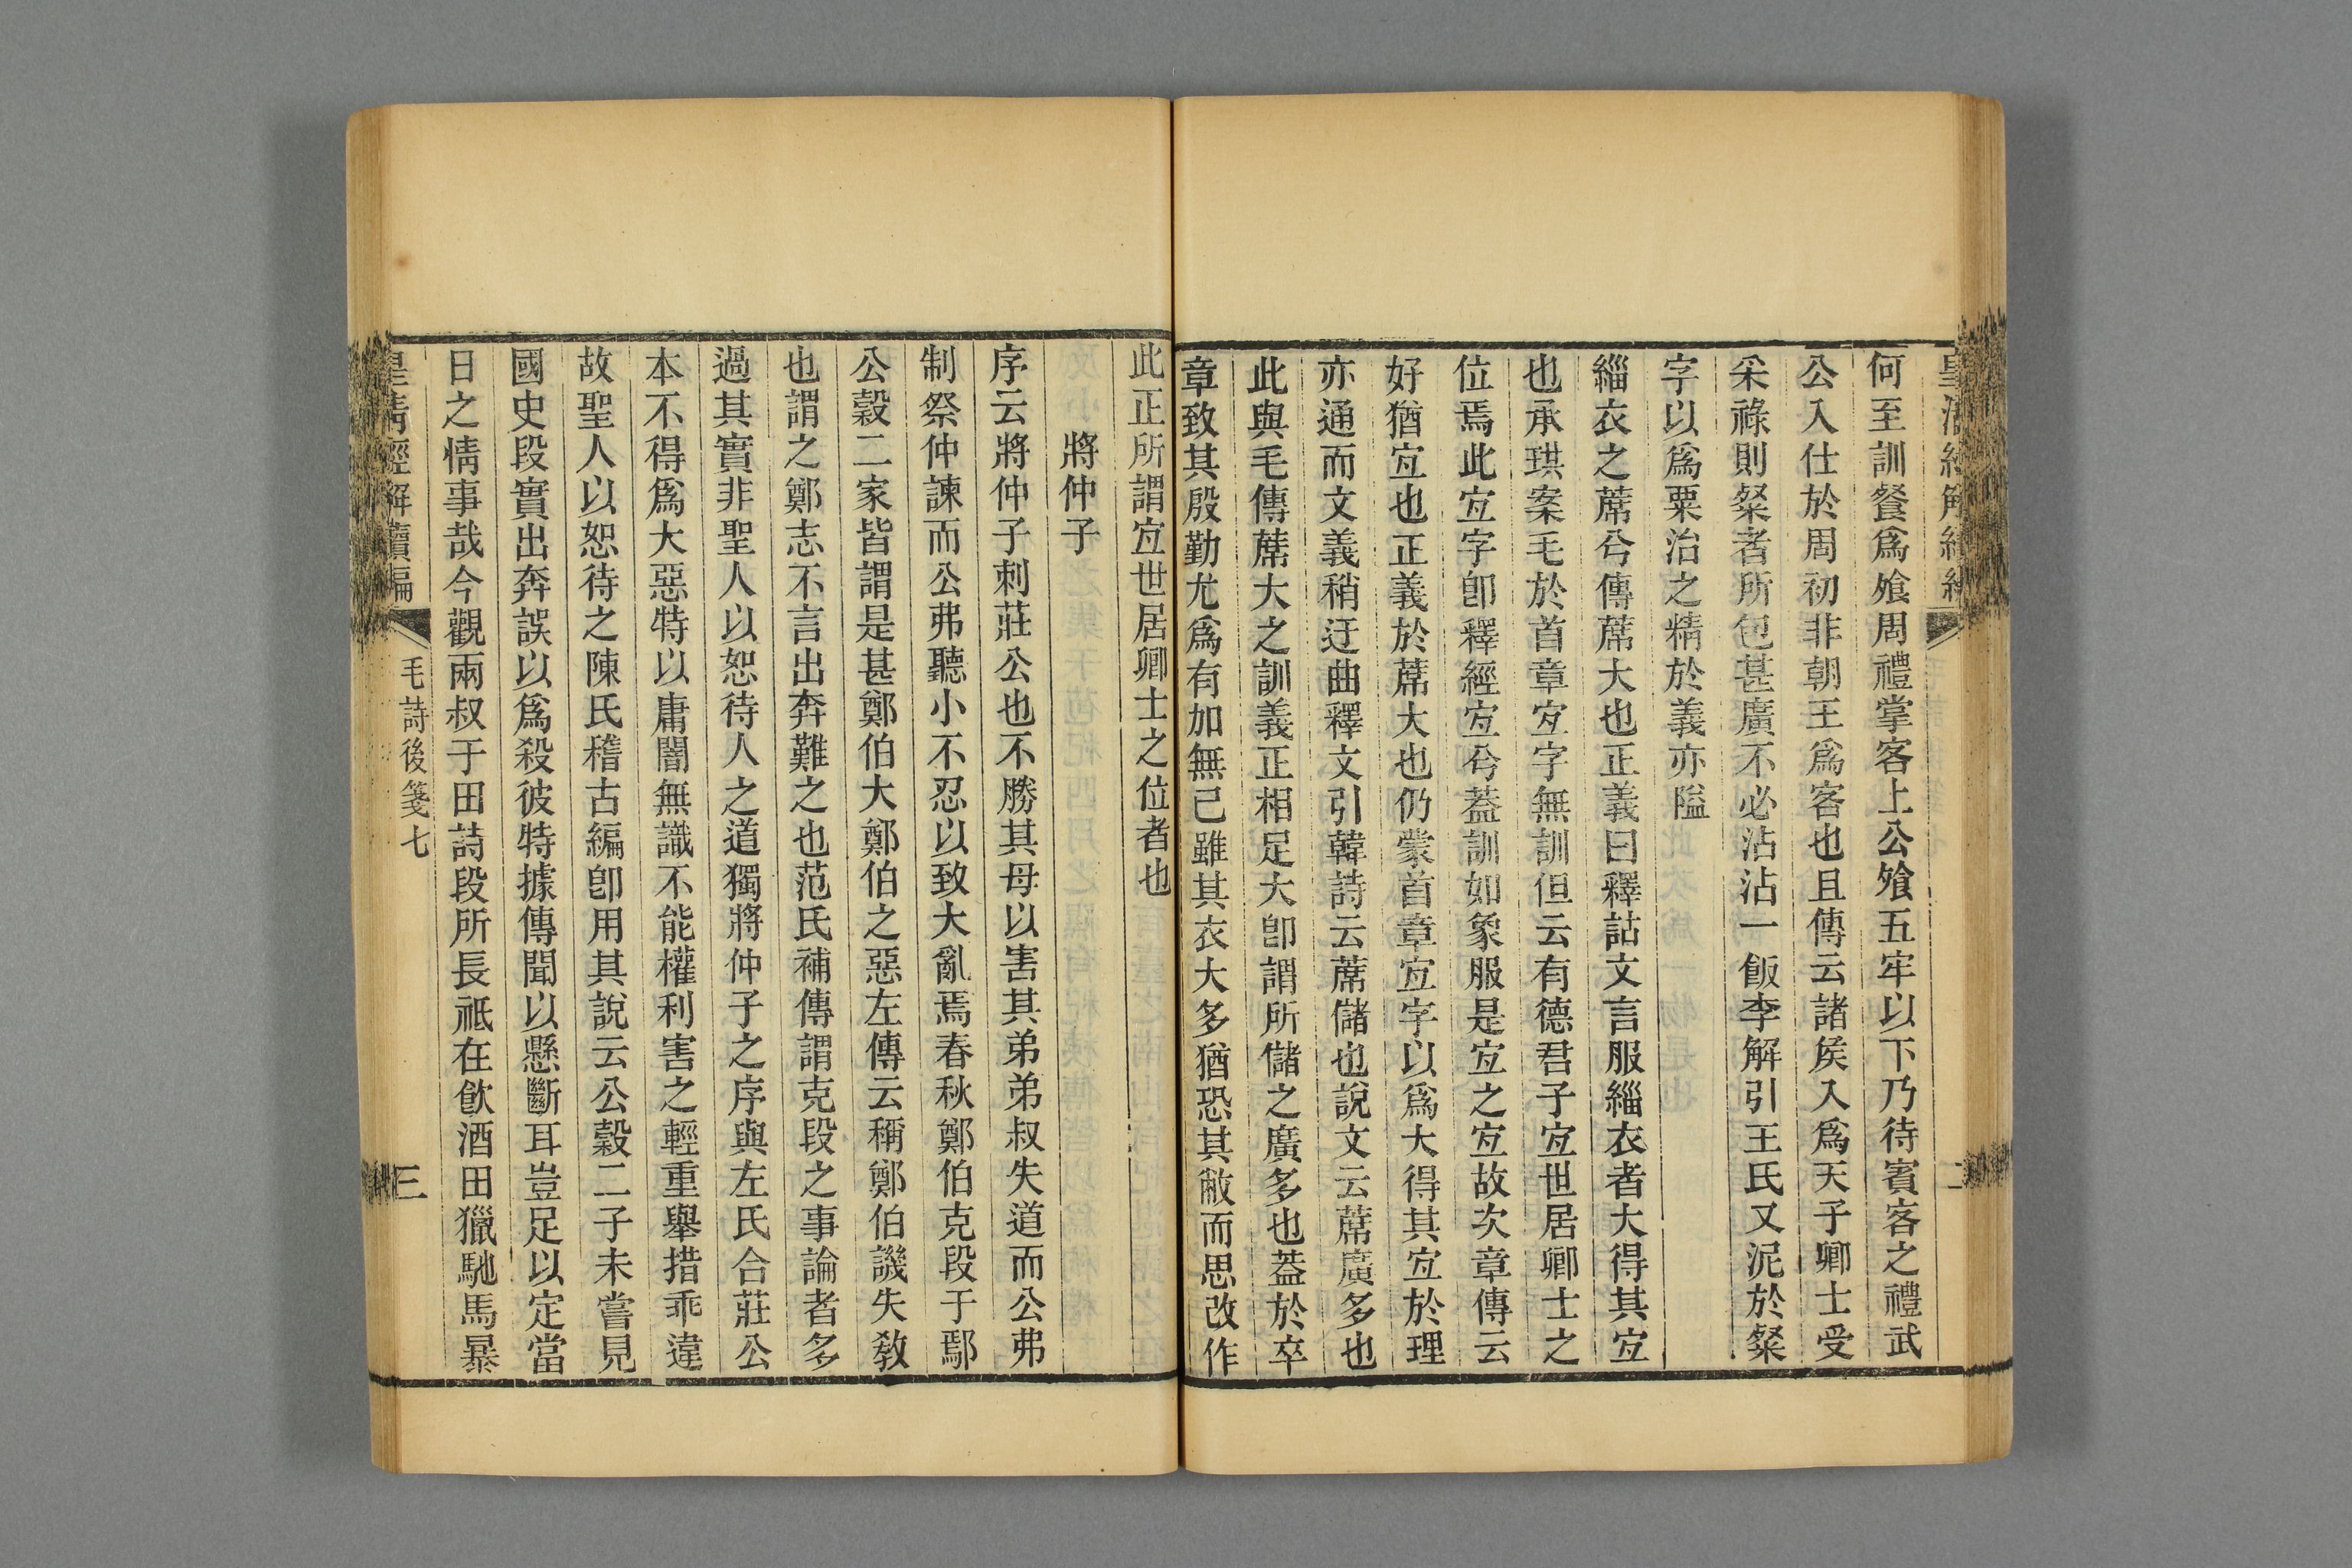 何至訓餐爲飧周禮掌客上公飧五牢以下乃待賓客之禮武
公入仕於周初非朝王爲客也且傳云諸矦入爲天子卿士受
采祿則粲者所包甚廣不必沾沾一飯李解引王氏又泥於粲
字以爲粟治之精於義亦隘
緇衣之蓆兮傳蓆大也正義曰釋詁文言服緇衣者大得其宐
也承珙案毛於首章宐字無訓但云有德君子宐世居卿士之
位焉此宐字卽釋經宐兮葢訓如象服是宐之宐故次章傳云
好猶宐也正義於蓆大也仍蒙首章宐字以爲大得其宐於理
亦通而文義稍迂曲釋文引韓詩云蓆儲也說文云蓆廣多也
此與毛傳蓆大之訓義正相足大卽謂所儲之廣多也葢於卒
章致其殷勤尤爲有加無已雖其衣大多猶恐其敝而思改作
此正所謂宐世居卿士之位者也
將仲子
序云將仲子刺莊公也不勝其母以害其弟弟叔失道而公弗
制祭仲諫而公弗聽小不忍以致大亂焉春秋鄭伯克段于鄢
公穀二家皆謂是甚鄭伯大鄭伯之惡左傳云稱鄭伯譏失敎
也謂之鄭志不言出奔難之也范氏補傳謂克段之事論者多
過其實非聖人以恕待人之道獨將仲子之序與左氏合莊公
本不得爲大惡特以庸闇無識不能權利害之輕重舉措乖違
故聖人以恕待之陳氏稽古編卽用其說云公穀二子未嘗見
國史段實出奔誤以爲殺彼特據傳聞以懸斷耳豈足以定當
日之情事哉今觀兩叔于田詩段所長祇在飮酒田獵馳馬暴
皇清經解續編
毛詩後箋七
三